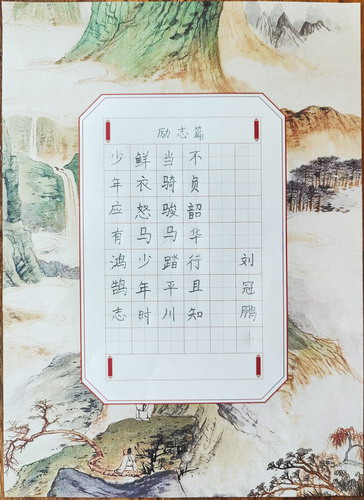 励志篇
少年应有鸿鹄志
当骑骏马踏平川
鲜衣怒马少年时
不负韶华行且知
刘冠鹏